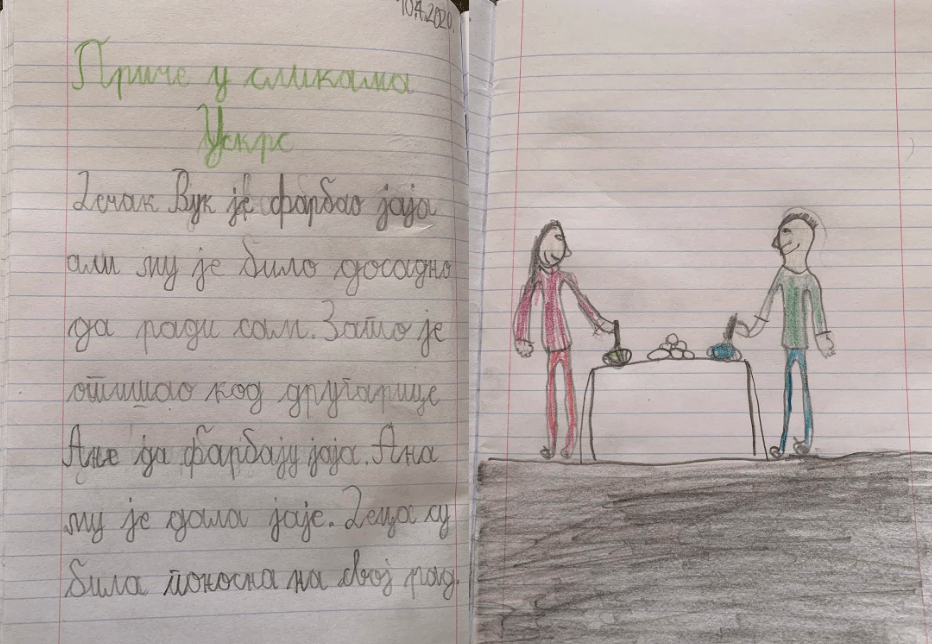 10.4.2020.
Приче у сликама
Ускрс
Дечак Вук је фарбао јаја
али му је било досадно
да ради сам. Зато је
отишао код другарице
Ане да фарбају јаја. Ана
му је дала јаје. Деца су
била поносна на свој рад.